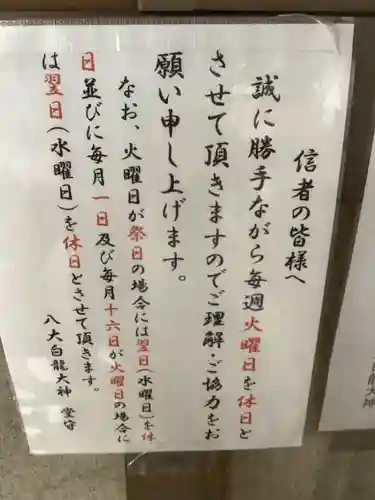 信者の皆様へ
誠に勝手ながら毎週火曜日を休日と
させて頂きますのでご理解・ご協力をお
願い申し上げます。
なお、火曜日が祭日の場合には翌日(水曜日)を休
日並びに毎月一日及び毎月十六日が火曜日の場合に
は翌日(水曜日)を休日とさせて頂きます。
八大白龍大神 堂守